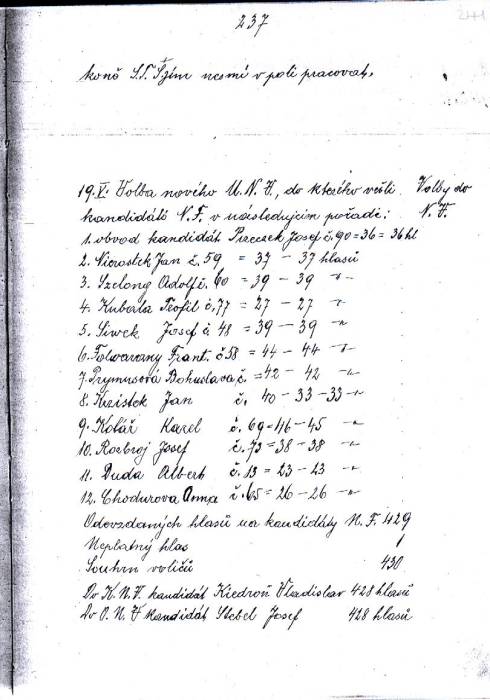 237
241
koně S.T. Szím nesmí v poli pracovat.
19.V. Volba nového M.N.V., do kterého vešli Volby do
kandidáti N.F. v následujícím pořadí: N.V.
1. obvod kandidát Josef č. 90 = 36 = 36 hl
2. Jan č. 59 = 37 - 37 hlasů
3. Szelong Adolf č. 60 = 39 - 39 -"-
4. Kubala Teofil č. 77 = 27 - 27 -"-
5. Siwek Josef č 48 = 39 - 39 -"-
6. Folwarczny Frant. č 58 = 44 - 44 -"-
7. Prymusová Bohuslava č. = 42 - 42 -"-
8. Krzistek Jan č. 40 - 33 - 33 -"-
9. Kolář Karel č. 69 = 46 - 45 -"-
10. Rozbroj Josef č. 73 = 38 - 38 -"-
11. Duda Albert č. 13 = 23 - 23 -"-
12. Chodurova Anna č. 65 = 26 - 26 -"-
Odevzdaných hlasů na kandidáty N.F. 429
Neplatný hlas 1
Souhrn voličů 430
Do K.N.V. kandidát Kiedroň Vladislav 428 hlasů
Do O.N.V kandidát Stebel Josef 428 hlasů